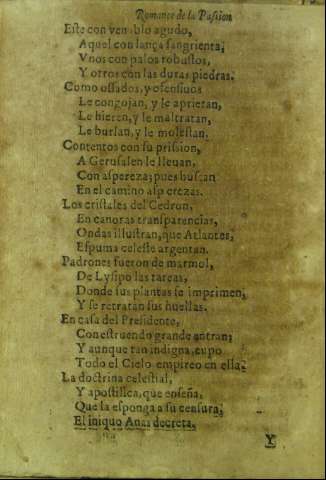 Romance de la Passion
Este con venablo agudo,
Aquel con lança sangrienta;
Vnos con palos robustos,
Y otros con las duras piedras.
Como ossados, y ofensiuos
Le congojan, y le aprietan,
Le hieren, y le maltratan,
Le burlan, y le molestan.
Contentos con su prission,
A Gerusalen le lleuan,
Con aspereza; pues buscan
En el camino asperezas.
Los cristales del Cedron,
En canoras transparencias,
Ondas illustran, que Atlantes,
Espuma celeste argentan.
Padrones fueron de marmol,
De Lysipo las tareas,
Donde sus plantas se imprimen,
Y se retratan sus huellas.
En casa del Presidente,
Con estruendo grande entran;
Y aunque tan indigna, cupo
Todo el Cielo empireo en ella;
La doctrina celestial,
Y apostilica, que enseña,
Que la esponga a su censura;
El iniquo Anas decreta.
Y